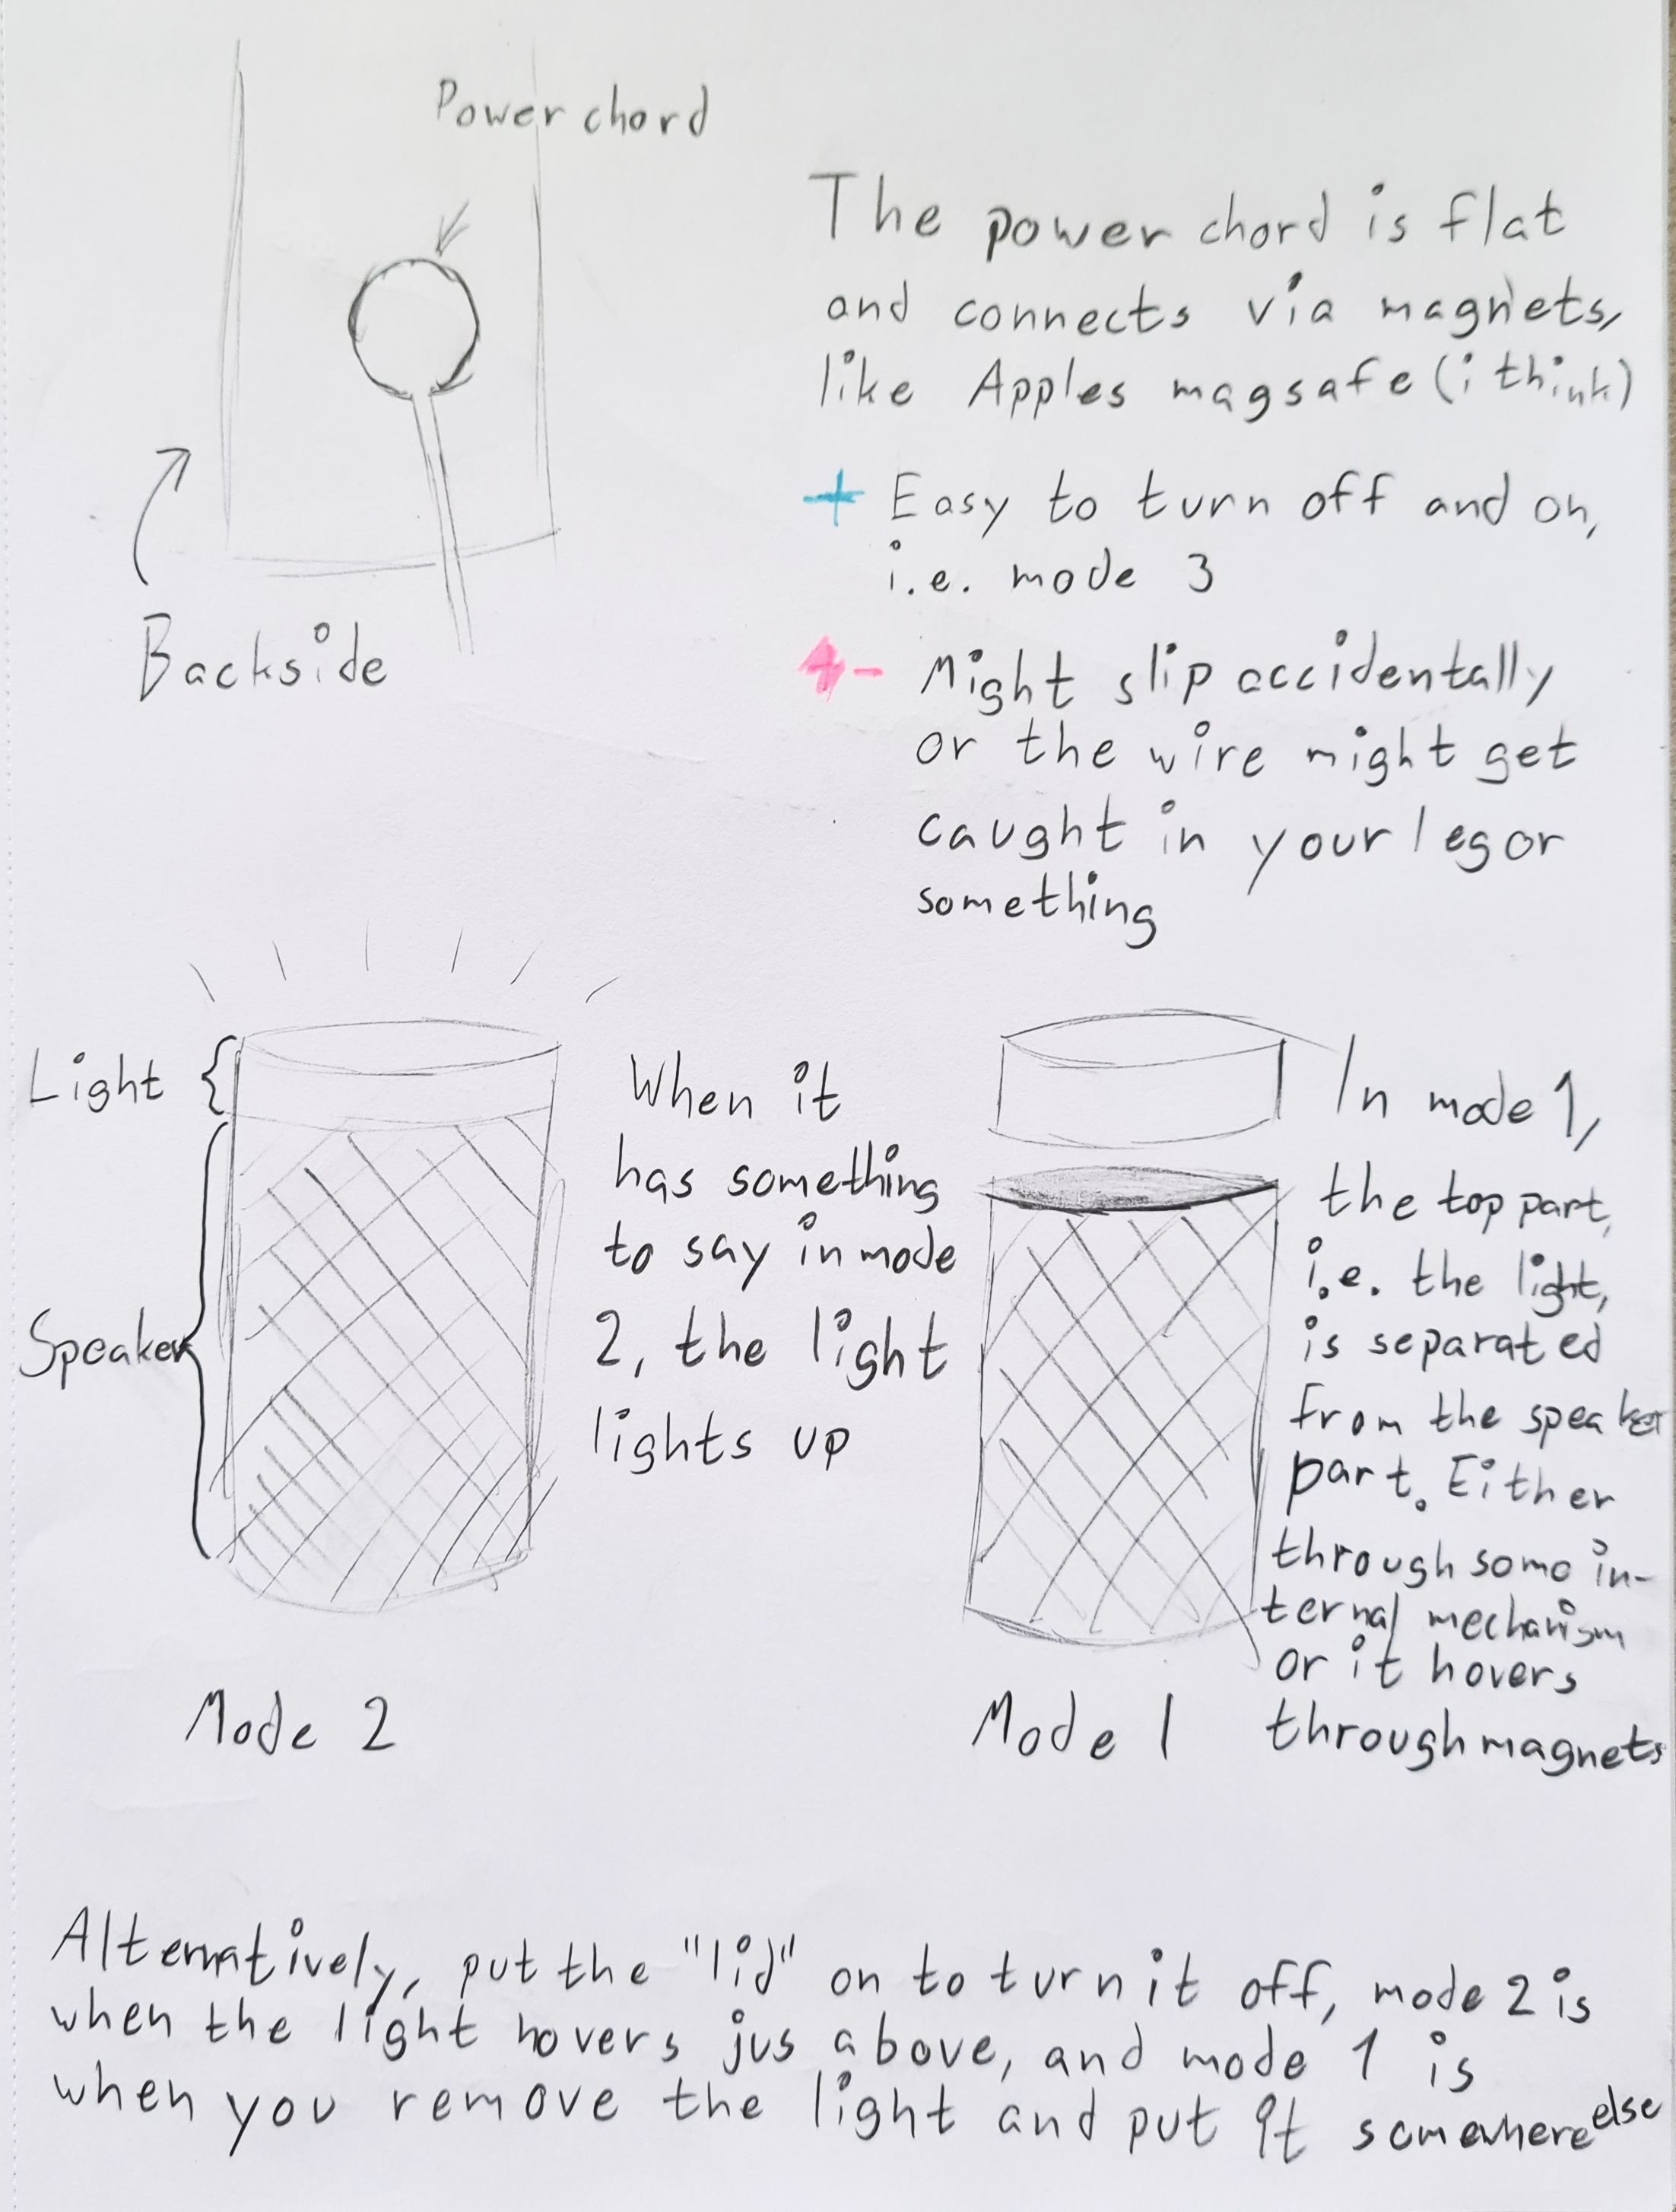 Power chord
The power chord is flat
and connects via magnets,
like Apples magsafe (i think)
+ Easy to turn off and on,
i.e. mode 3
- Might slip accidentally
or the wire might get
caught in your leg or
something
Backside
Light
Speaker
When it
has something
to say in mode
2, the light
lights up
Mode 2
In mode 1,
the top part,
i.e. the light,
is separated
from the speaker
part. Either
through some in-
ternal mechanism
or it hovers
through magnets
Mode 1
Alternatively, put the "lid" on to turn it off, mode 2 is
when the light hovers jus above, and mode 1 is
when you remove the light and put it somewhere else